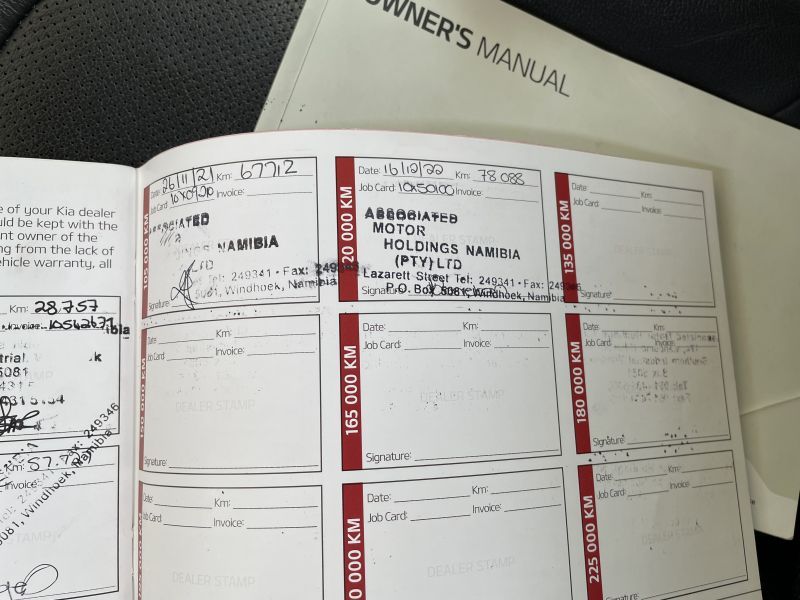 OWNER'S MANUAL
e of your Kia dealer
uld be kept with the
nt owner of the
ng from the lack of
ehicle warranty, all
Km: 28.757
Invoice: 10542677
ibla
trial. k
5081
Km: 57.72
Invoice:
5081, Windhoek, Namibia
Fax: 249346
105 000 KM
Date: 26/11/21 Km: 67712
Job Card: Invoice:
ASSOCIATED
NAMIBIA
LTD
Tel: 249341 · Fax: 249
5081, Windhoek, Namibia
Signature:
20 000 KM
Date: 16/12/22 Km: 78 088
Job Card: 10x50100 Invoice:
ASSOCIATED
MOTOR
HOLDINGS NAMIBIA
(PTY) LTD
Lazarett Street Tel: 249341 · Fax: 249346
P.O. Box 5081, Windhoek, Namibia
Signature:
135 000 KM
Date: Km:
Job Card: Invoice:
DEALER STAMP
Signature:
150 000 KM
Date: Km:
Job Card: Invoice:
DEALER STAMP
Signature:
165 000 KM
Date: Km:
Job Card: Invoice:
DEALER STAMP
Signature:
180 000 KM
Date: Km:
Job Card: Invoice:
Signature:
Date: Km:
Job Card: Invoice:
DEALER STAMP
0 000 KM
Date: Km:
Job Card: Invoice:
DEALER STAMP
225 000 KM
Date: Km:
Job Card: Invoice:
DEALER STAMP
Signature: